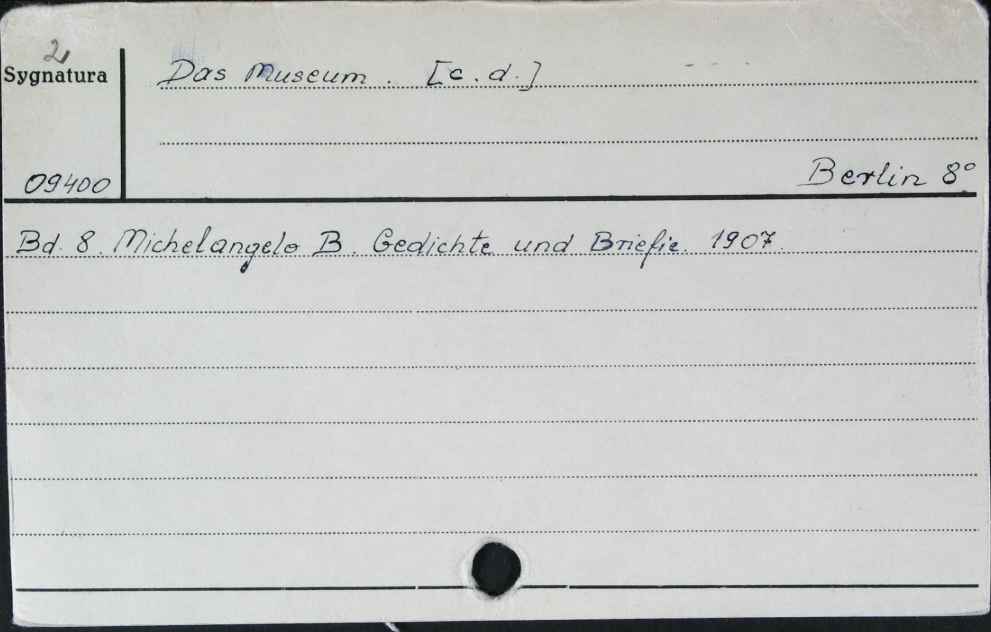 2
Sygnatura
Das Museum. [c.d.]
09400
Berlin 8°
Bd. 8. Michelangelo B. Gedichte und Briefie. 1907.